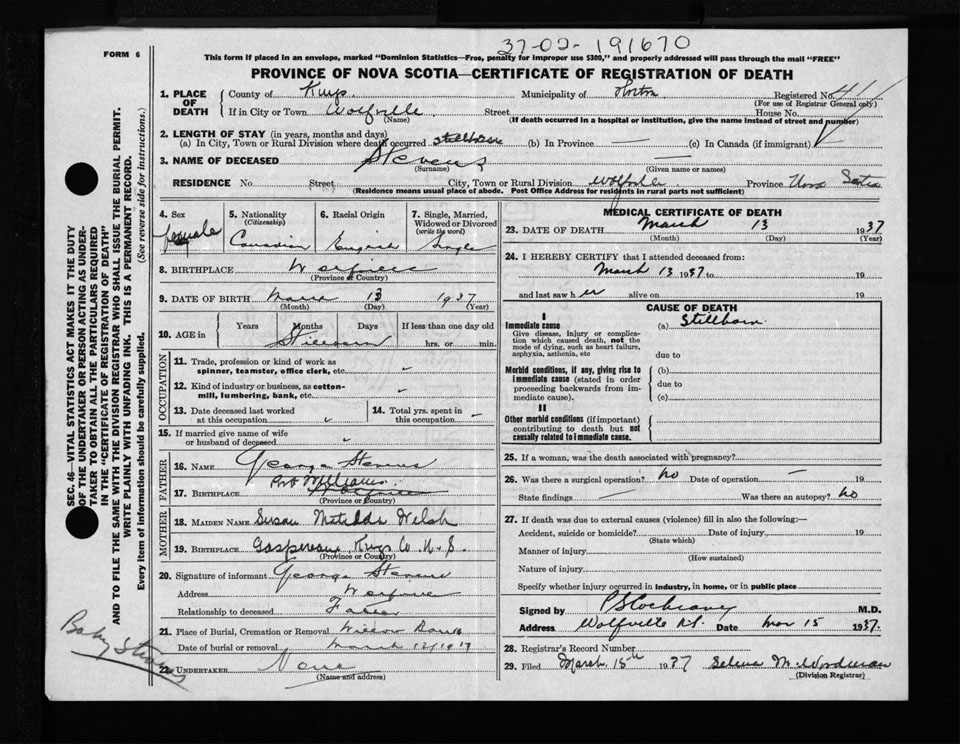 37-02-191670
FORM 6
This form if placed in an envelope, marked "Dominion Statistics—Free, penalty for improper use $300," and properly addressed will pass through the mail "FREE"
PROVINCE OF NOVA SCOTIA—CERTIFICATE OF REGISTRATION OF DEATH
1. PLACE OF DEATH
County of Kings Municipality of Horton Registered No.
(For use of Registrar General only)
If in City or Town Wolfville Street House No.
(Name) (If death occurred in a hospital or institution, give the name instead of street and number)
2. LENGTH OF STAY (in years, months and days)
(a) In City, Town or Rural Division where death occurred stillborn (b) In Province — (c) In Canada (if immigrant)
3. NAME OF DECEASED Stevens —
(Surname) (Given name or names)
RESIDENCE No. Street City, Town or Rural Division Wolfville Province Nova Scotia
(Residence means usual place of abode. Post Office Address for residents in rural parts not sufficient)
4. Sex
female
5. Nationality
(Citizenship)
Canadian
6. Racial Origin
English
7. Single, Married, Widowed or Divorced
(write the word)
Single
8. BIRTHPLACE Wolfville
(Province or Country)
9. DATE OF BIRTH March 13 1937
(Month) (Day) (Year)
10. AGE in Years Months Days If less than one day old
Stillborn hrs. or min.
OCCUPATION
11. Trade, profession or kind of work as
spinner, teamster, office clerk, etc. "
12. Kind of industry or business, as cotton-
mill, lumbering, bank, etc. "
13. Date deceased last worked
at this occupation "
14. Total yrs. spent in
this occupation "
15. If married give name of wife
or husband of deceased "
FATHER
16. NAME George Stevens
Port Williams
17. BIRTHPLACE Wolfville
(Province or Country)
MOTHER
18. MAIDEN NAME Susan Matilda Welsh
19. BIRTHPLACE Gaspereau, Kings Co. N.S.
(Province or Country)
20. Signature of informant George Stevens
Address Wolfville
Relationship to deceased Father
21. Place of Burial, Cremation or Removal Willow Bank
Date of burial or removal March 1937
22. UNDERTAKER None
(Name and address)
MEDICAL CERTIFICATE OF DEATH
23. DATE OF DEATH March 13 1937
(Month) (Day) (Year)
24. I HEREBY CERTIFY that I attended deceased from:
March 13 1937 to 19
and last saw her alive on 19
CAUSE OF DEATH
I
Immediate cause (a) Stillborn.
Give disease, injury or complica-
tion which caused death, not the
mode of dying, such as heart failure,
asphyxia, asthenia, etc due to
Morbid conditions, if any, giving rise to (b)
immediate cause (stated in order due to
proceeding backwards from im-
mediate cause). (c)
II
Other morbid conditions (if important)
contributing to death but not
causally related to immediate cause.
25. If a woman, was the death associated with pregnancy?
26. Was there a surgical operation? no Date of operation —
State findings — Was there an autopsy? no
27. If death was due to external causes (violence) fill in also the following:—
Accident, suicide or homicide? Date of injury 19
(State which)
Manner of injury
(How sustained)
Nature of injury
Specify whether injury occurred in industry, in home, or in public place
Signed by P S Cochrane M.D.
Address Wolfville N.S. Date Mar 15 1937.
28. Registrar's Record Number
29. Filed March 15th 1937 Selena M. Woodman
(Division Registrar)
SEC. 46—VITAL STATISTICS ACT MAKES IT THE DUTY
OF THE UNDERTAKER OR PERSON ACTING AS UNDER-
TAKER TO OBTAIN ALL THE PARTICULARS REQUIRED
IN THE "CERTIFICATE OF REGISTRATION OF DEATH"
AND TO FILE THE SAME WITH THE DIVISION REGISTRAR WHO SHALL ISSUE THE BURIAL PERMIT.
WRITE PLAINLY WITH UNFADING INK. THIS IS A PERMANENT RECORD.
Every item of information should be carefully supplied. (See reverse side for instructions.)
Baby Stevens